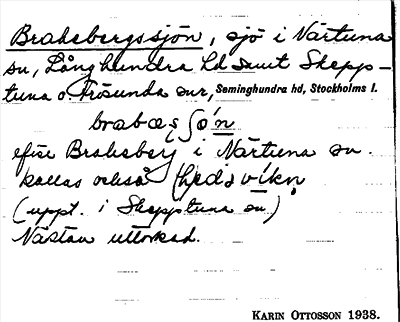 Brahebergssjön, sjö i Närtuna
sn, Långhundra hd samt Skepp-
tuna o Frösunda snr, Seminghundra hd, Stockholms l.
efter Braheberg i Närtuna sn.
kallas också
(uppt. i Skepptuna sn)
Nästan uttorkad.
KARIN OTTOSSON 1938.